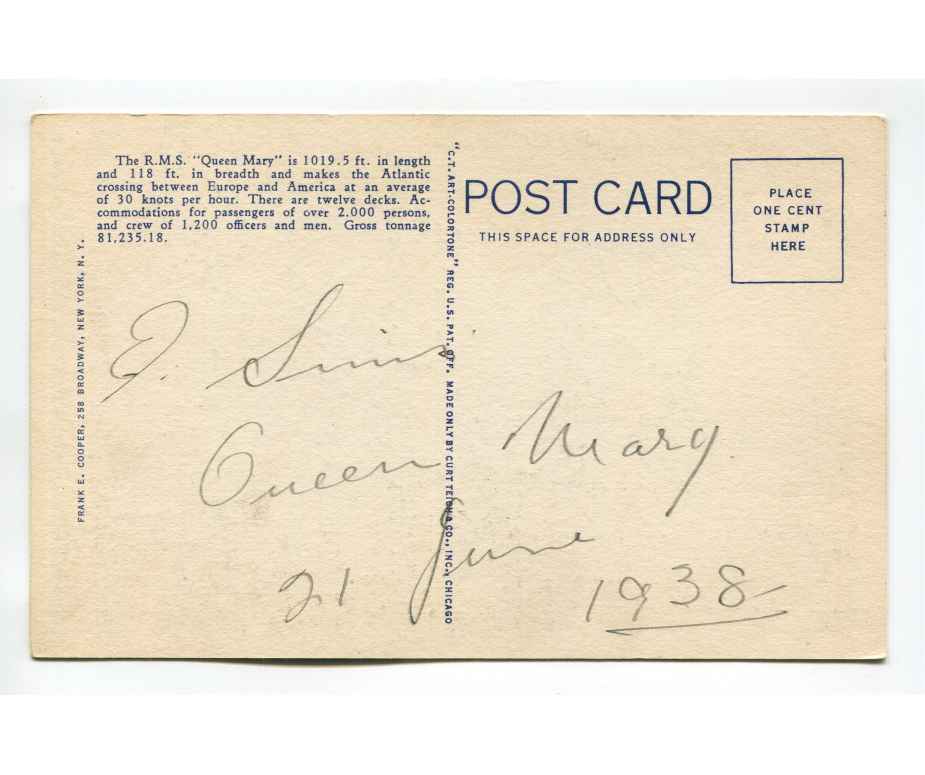 The R.M.S. "Queen Mary" is 1019.5 ft. in length
and 118 ft. in breadth and makes the Atlantic
crossing between Europe and America at an average
of 30 knots per hour. There are twelve decks. Ac-
commodations for passengers of over 2,000 persons,
and crew of 1,200 officers and men. Gross tonnage
81,235.18.
FRANK E. COOPER, 258 BROADWAY, NEW YORK, N. Y.
"C.T. ART-COLORTONE" REG. U.S. PAT. OFF. MADE ONLY BY CURT TEICH & CO., INC., CHICAGO
POST CARD
THIS SPACE FOR ADDRESS ONLY
PLACE
ONE CENT
STAMP
HERE
Queen Mary
21 June 1938